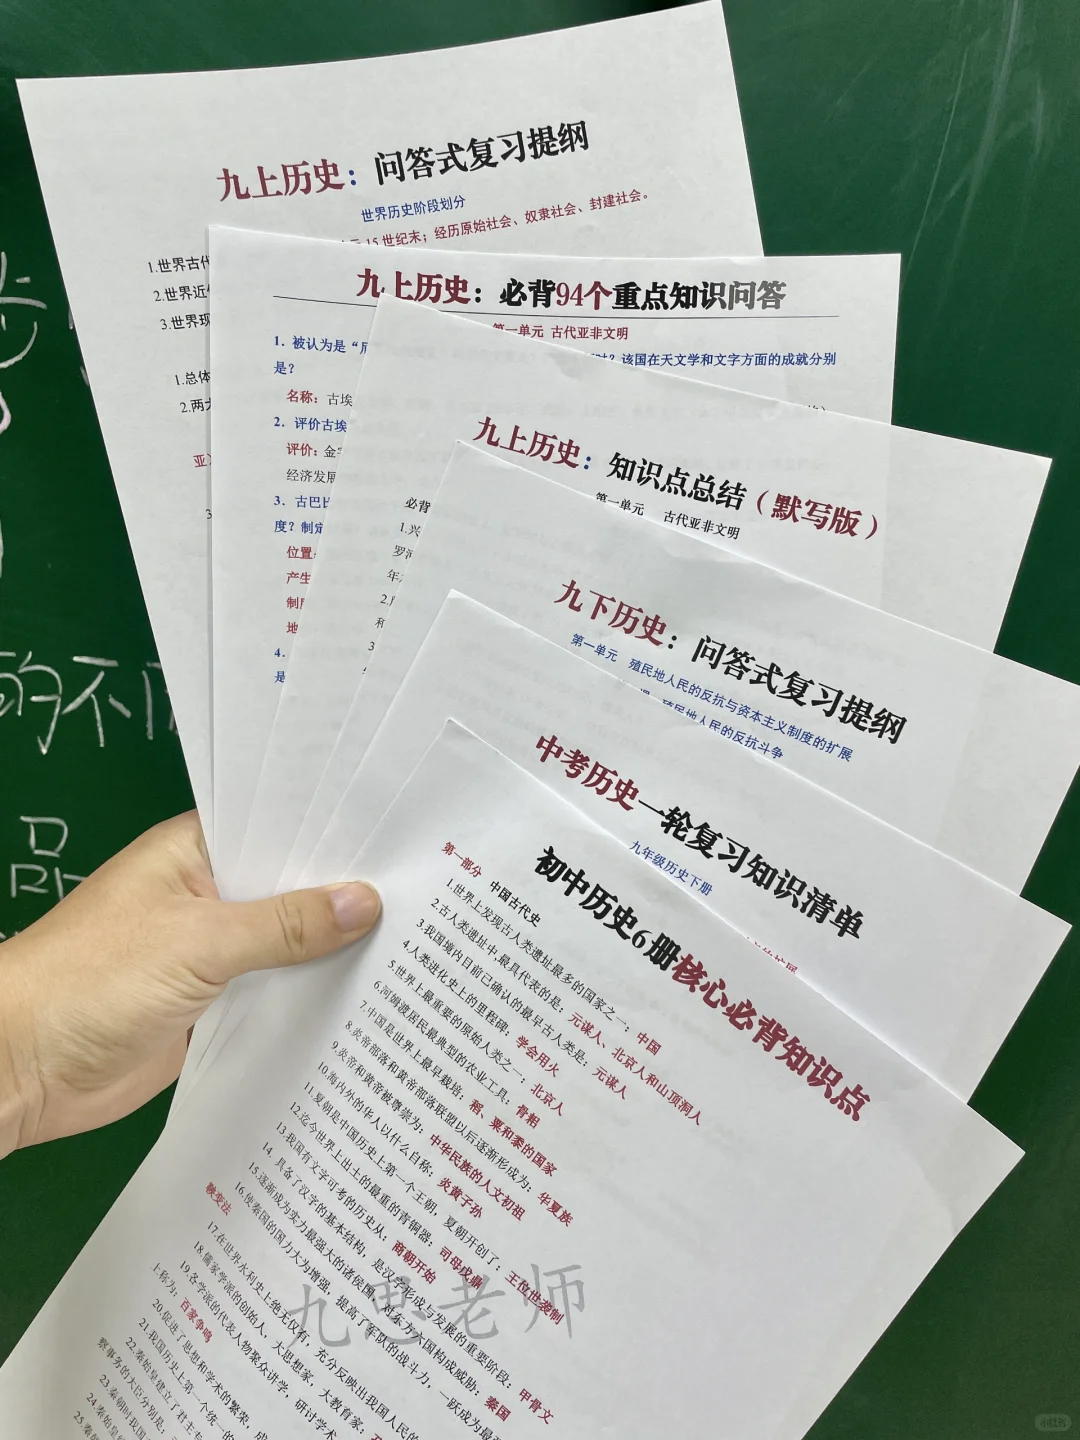 九上历史：问答式复习提纲
世界历史阶段划分
15世纪末；经历原始社会、奴隶社会、封建社会。
1.世界古代
2.世界近
3.世界现
1.总体
2.两大
九上历史：必背94个重点知识问答
第一单元 古代亚非文明
1．被认为是“
该国在天文学和文字方面的成就分别
是？
名称：古埃
2．评价古埃
评价：金字
经济发展
3．古巴比
度？制定
位置
产生
制度
地
4．
是
九上历史：知识点总结（默写版）
第一单元 古代亚非文明
必背
1.兴
罗河
年
2.
和
3
九下历史：问答式复习提纲
第一单元 殖民地人民的反抗与资本主义制度的扩展
殖民地人民的反抗斗争
中考历史一轮复习知识清单
九年级历史下册
初中历史6册核心必背知识点
第一部分 中国古代史
1.世界上发现古人类遗址最多的国家之一：中国
2.古人类遗址中,最具代表的是：元谋人、北京人和山顶洞人
3.我国境内目前已确认的最早古人类是：元谋人
4.人类进化史上的里程碑：学会用火
5.世界上最重要的原始人类之一：北京人
6.河姆渡居民最典型的农业工具：骨耜
7.中国是世界上最早栽培：稻、粟和黍的国家
8.炎帝部落和黄帝部落联盟以后逐渐形成为：华夏族
9.炎帝和黄帝被尊崇为：中华民族的人文初祖
10.海内外的华人以什么自称：炎黄子孙
11.夏朝是中国历史上第一个王朝，夏朝开创了：王位世袭制
12.迄今世界上出土的最重的青铜器：司母戊鼎
13.我国有文字可考的历史从：商朝开始
14.具备了汉字的基本结构，是汉字形成与发展的重要阶段：甲骨文
15.逐渐成为实力最强大的诸侯国，对东方六国构成威胁：秦国
16.使秦国的国力大为增强，提高了军队的战斗力，一跃成为最
鞅变法
17.在世界水利史上绝无仅有，充分反映出我国人民的
18.儒家学派的创始人，大思想家，大教育家：
19.各学派的代表人物聚众讲学，研讨学术
上称为：百家争鸣
20.促进了思想和学术的繁荣，成
21.我国历史上第一个统一的
22.秦始皇建立了君主专
察事务的大臣分别是：
23.秦朝时我国
24.秦始皇
25.秦
九思老师
的不
品
小红书